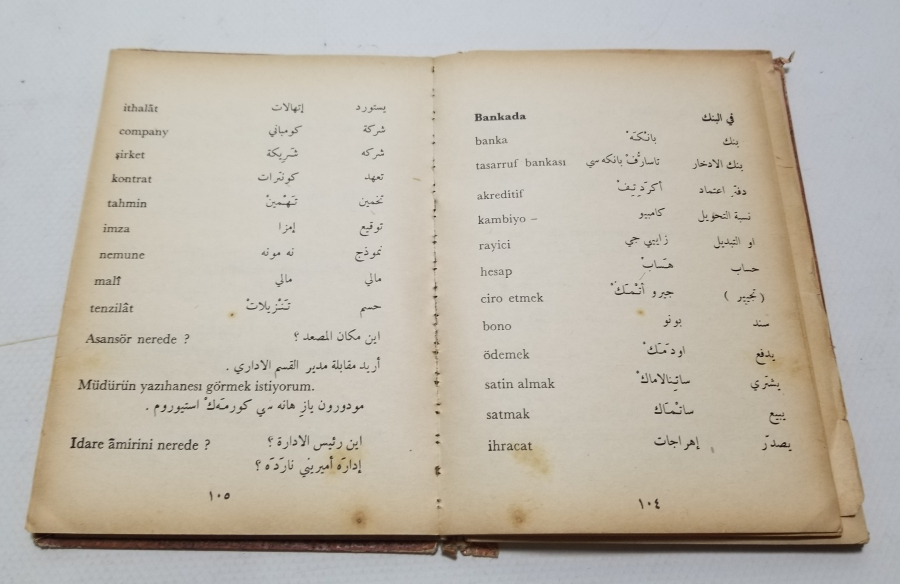 Bankada في البنك
banka بانْكَهْ بنك
tasarruf bankası تاسارُّفْ بانكه سي بنك الادخار
akreditif أكرَدِتِيفْ دفتر اعتماد
kambiyo – كامبيو نسبة التحويل
rayici زايبي جي او التبديل
hesap هَسَابْ حساب
ciro etmek جيرو أتْمَكْ (تجيير)
bono بونو سند
ödemek اودَمَكْ يدفع
satin almak ساتِينالاماكْ يشتري
satmak ساتْمَاك يبيع
ihracat إهراجات يصدّر
١٠٤
ithalât إتهالات يستورد
company كومباني شركة
şirket شَريكة شركه
kontrat كونترات تعهد
tahmin تَهْمِينْ تخمين
imza إمزا توقيع
nemune نه مونه نموذج
malî مالي مالي
tenzilât تَنْزيلاتْ حسم
Asansör nerede ? اين مكان المصعد ؟
أريد مقابلة مدير القسم الاداري .
Müdürün yazıhanesı görmek istiyorum.
مودورون يازِ هانه سي كورمَكْ استيوروم .
Idare âmirini nerede ? اين رئيس الادارة ؟
إدارَه أميريني نارَدَه ؟
١٠٥